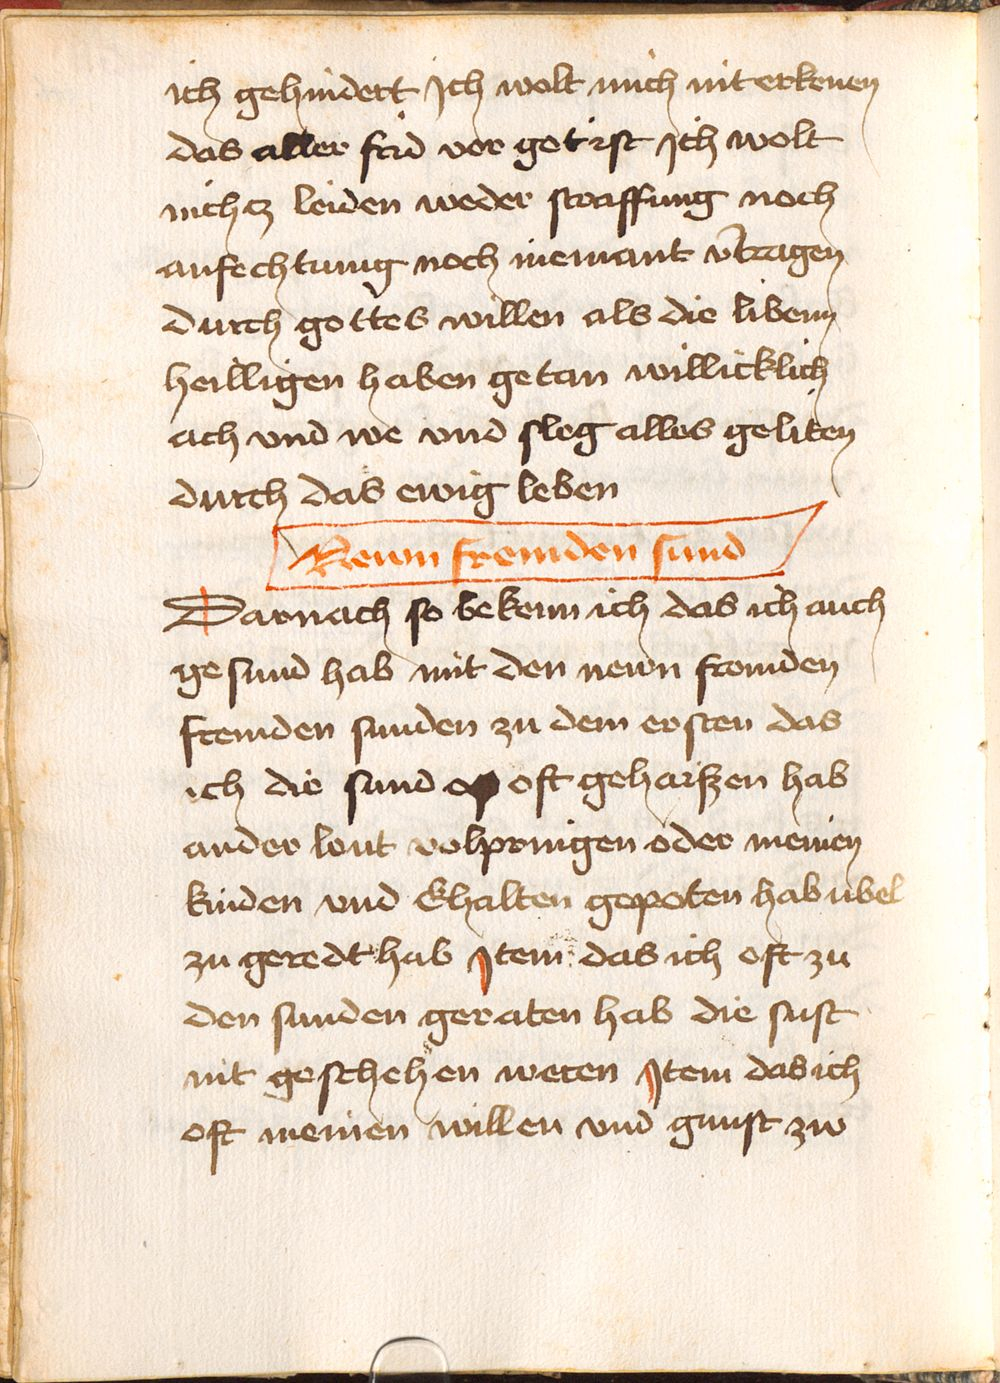 ich gehindert Ich wolt mich nit erkenen
das aller frid vor got ist Ich wolt
nichcz leiden weder straffung noch
anfechtung noch niemant v̄tragen
durch gottes willen als die libenn
heilligen haben getan willicklich
ach vnd we vnd sleg alles geliten
durch das ewig leben
Newn fremden sund
Darnach so bekenn ich das ich auch
gesund hab mit den newn fromden
fremden sunden zu dem ersten das
ich die sund oft gehaiszen hab
ander leut volpringen oder meinen
kinden vnd Ehalten gepoten hab ubel
zu geredt hab Item das ich oft zu
den sunden geraten hab die sust
nit geschehen weren Item das ich
oft meinen willen vnd gunst zw